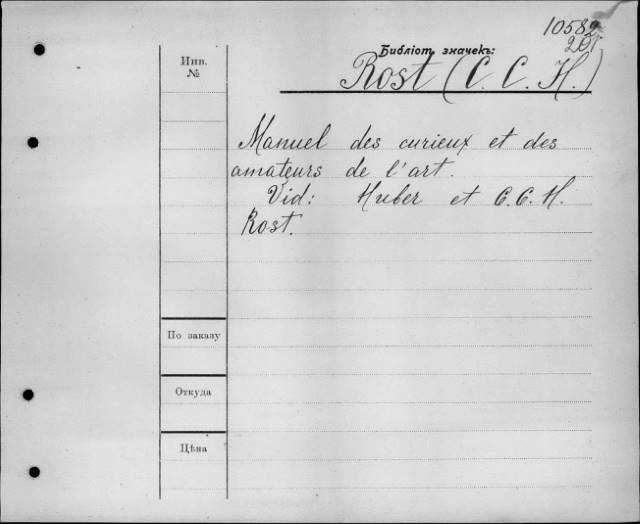 10582
201
Библіот. значекъ:
Инв.
№
Rost (C. C. H.)
Manuel des curieux et des
amateurs de l'art.
Vid: Huber et C. C. H.
Rost.
По заказу
Откуда
Цѣна